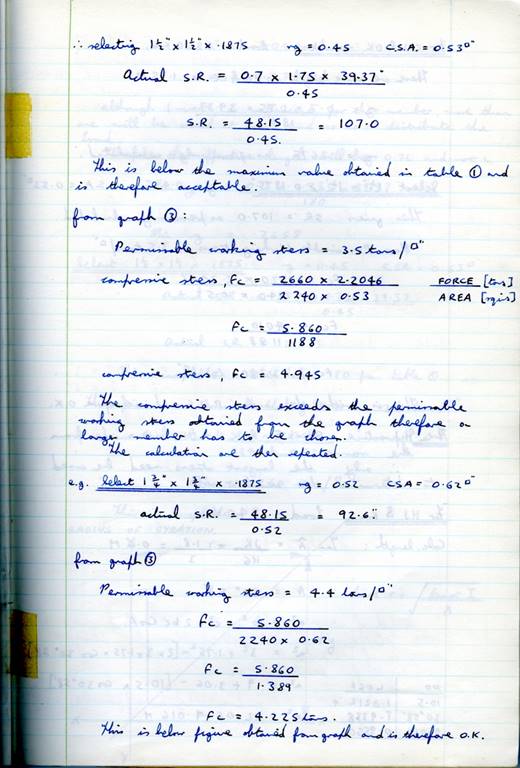 ∴ selecting 1½" x 1½" x .1875 rg = 0.45 C.S.A. = 0.53□"
Actual S.R. = 0.7 x 1.75 x 39.37"
0.45
S.R. = 48.15 = 107.0
0.45.
This is below the maximum value obtained in table ① and
is therefore acceptable.
from graph ③:
Permissable working stress = 3.5 tons/□"
compressive stress, Fc = 2660 x 2.2046 FORCE [tons]
2240 x 0.53 AREA [sqins]
Fc = 5.860
1188
compressive stress, Fc = 4.945
The compressive stress exceeds the permissable
working stress obtained from the graph therefore a
larger member has to be chosen.
The calculation are then repeated.
e.g. Select 1¾" x 1¾" x .1875 rg = 0.52 CSA = 0.62□"
actual S.R. = 48.15 = 92.6"
0.52
from graph ③
Permissable working stress = 4.4 tons/□"
Fc = 5.860
2240 x 0.62
Fc = 5.860
1.389
Fc = 4.225 tons.
This is below figure obtained from graph and is therefore O.K.